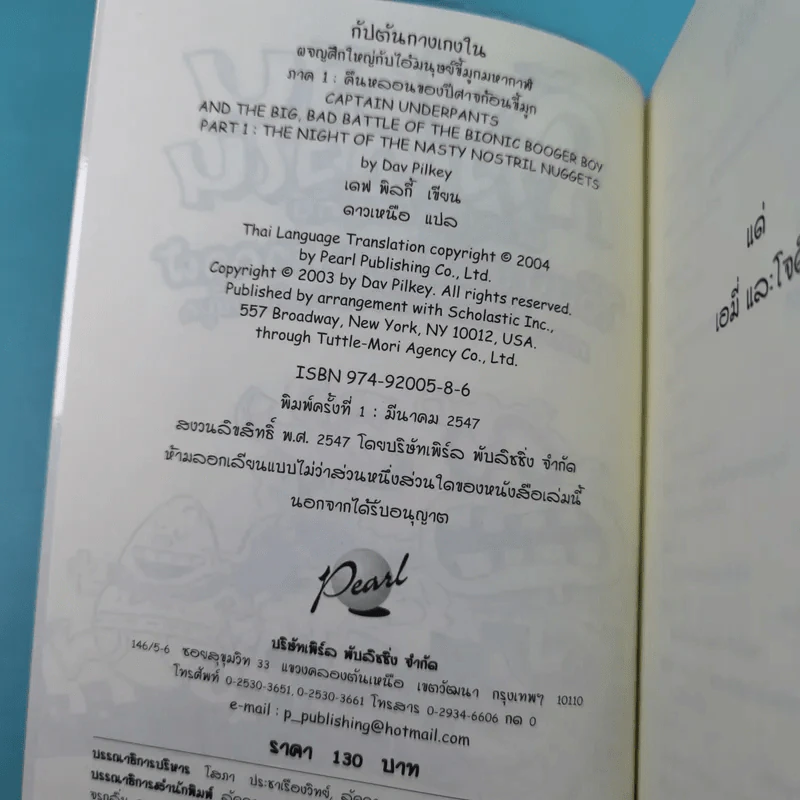 กัปตันกางเกงใน
ผจญศึกใหญ่กับไอ้มนุษย์ขี้มูกมหากาฬ
ภาค 1 : คืนหลอนของปีศาจก้อนขี้มูก
CAPTAIN UNDERPANTS
AND THE BIG, BAD BATTLE OF THE BIONIC BOOGER BOY
PART 1 : THE NIGHT OF THE NASTY NOSTRIL NUGGETS
by Dav Pilkey
เดฟ พิลกี้ เขียน
ดาวเหนือ แปล
Thai Language Translation copyright © 2004
by Pearl Publishing Co., Ltd.
Copyright © 2003 by Dav Pilkey. All rights reserved.
Published by arrangement with Scholastic Inc.,
557 Broadway, New York, NY 10012, USA.
through Tuttle-Mori Agency Co., Ltd.
ISBN 974-92005-8-6
พิมพ์ครั้งที่ 1 : มีนาคม 2547
สงวนลิขสิทธิ์ พ.ศ. 2547 โดยบริษัทเพิร์ล พับลิชชิ่ง จำกัด
ห้ามลอกเลียนแบบไม่ว่าส่วนหนึ่งส่วนใดของหนังสือเล่มนี้
นอกจากได้รับอนุญาต
Pearl
บริษัทเพิร์ล พับลิชชิ่ง จำกัด
146/5-6 ซอยสุขุมวิท 33 แขวงคลองตันเหนือ เขตวัฒนา กรุงเทพฯ 10110
โทรศัพท์ 0-2530-3651, 0-2530-3661 โทรสาร 0-2934-6606 กด 0
e-mail : p_publishing@hotmail.com
ราคา 130 บาท
บรรณาธิการบริหาร โสภา ประชาเรืองวิทย์,
บรรณาธิการสำนักพิมพ์
แด่
เอมี่ และโจดี้